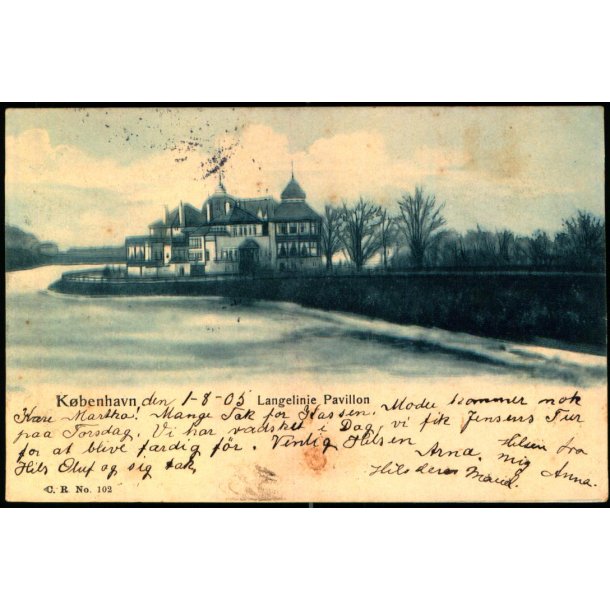 København den 1-8-05 Langelinie Pavillon
Kære Martha! Mange Tak for Kassen. Moder kommer nok
paa Torsdag. Vi har vadsket i Dag, vi fik Jensens Tur
for at blive færdig før. Venlig Hilsen
Hils Oluf og sig tak, Arna. Hilsen fra
mig Anna.
Hils deres Mand.
C. R. No. 102